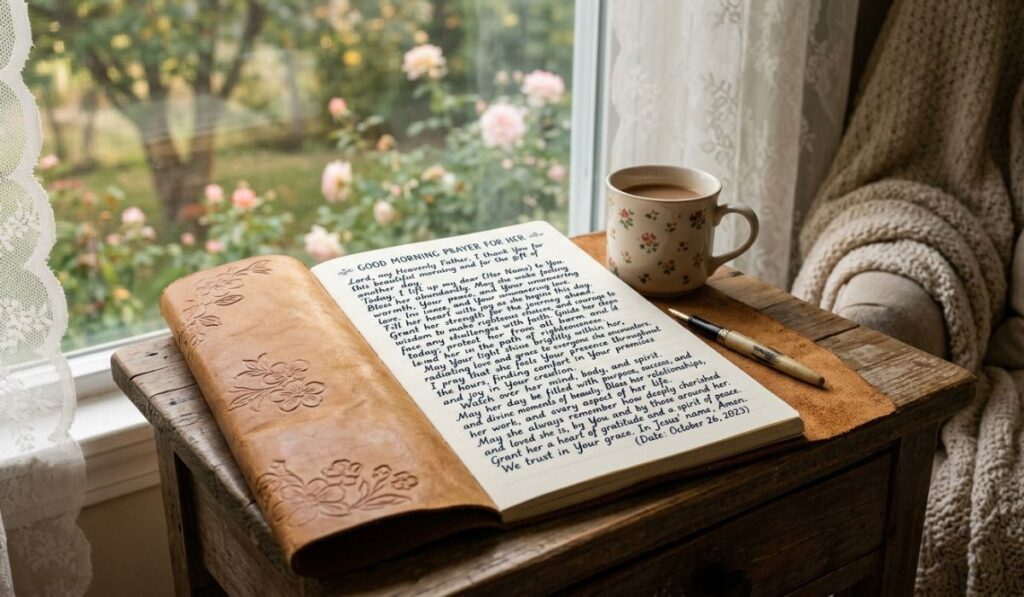 GOOD MORNING PRAYER FOR HER
Lord, my Heavenly Father, I thank You for
this beautiful morning and for the gift of
another day.
Today, I lift up my dear (Her Name) to You.
Bless her abundantly. May she wake feeling
warmth, Your peace, and Your unwavering
love.
Fill her heart with joy as she begins her day.
Grant her strength for her choices, and
wisdom to make righteous courage to
face any challenges with faith. Guide her
today, protect her from all harm, and
lead her in the path of righteousness.
May Your light shine brightly within her,
radiating love and grace to everyone she encounters.
I pray that she find Your presence throughout
the hours, finding comfort in Your promises
and joy in Your creation.
Watch over her mind, body, and spirit.
May her day be filled with purpose, success, and
divine moments of beauty in Bless her relationships,
her work, and avary aspect of her life.
May she always remember how deeply cherished
and loved she is, by You and by those around her.
Grant her a heart of gratitude and a spirit of peace.
We trust in Your grace. In Jesus' name, Amen.
(Date: October 26, 2023)